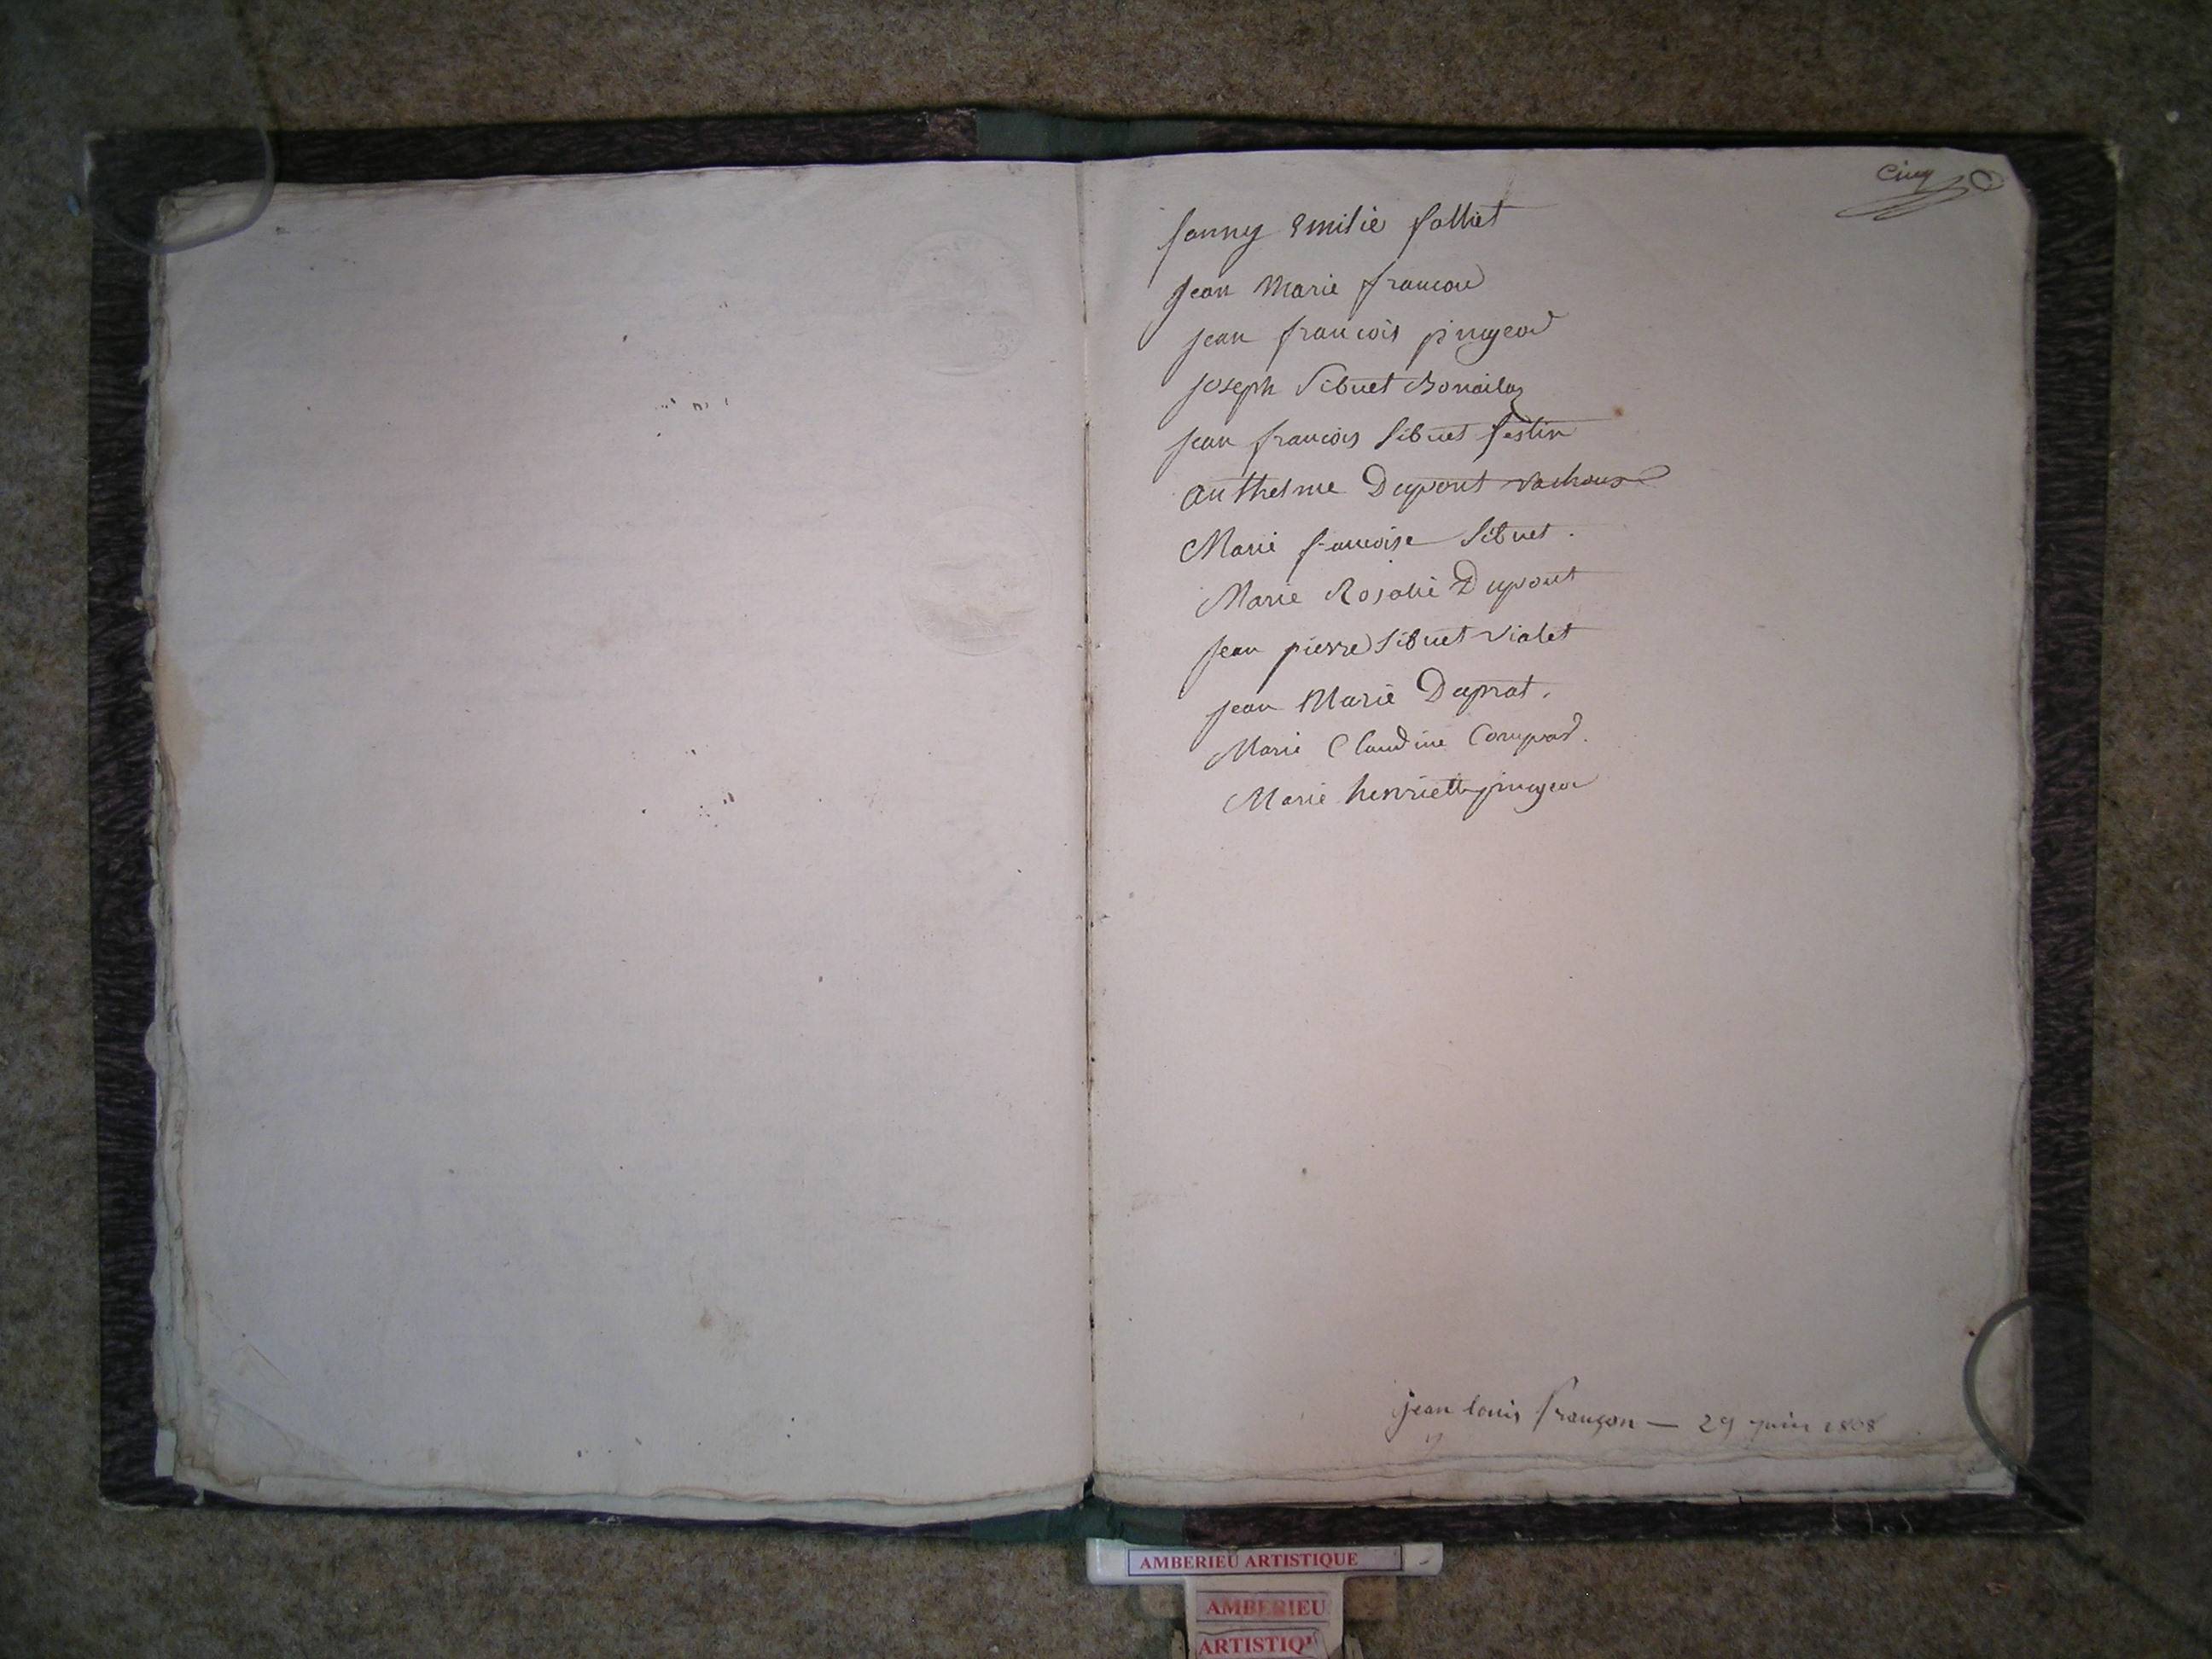 Cinq
fanny Emilie folliet
jean Marie francon
jean francois pingeon
joseph Sibuet
jean francois Sibuet festin
anthelme Dupont vachoux
Marie francoise Sibuet.
Marie Rosalie Dupont
jean pierre Sibuet violet
jean Marie Duprat.
Marie Claudine Compad.
Marie henriette pingeon
jean louis françon — 29 juin 1808
AMBERIEU ARTISTIQUE
AMBERIEU
ARTISTIQ